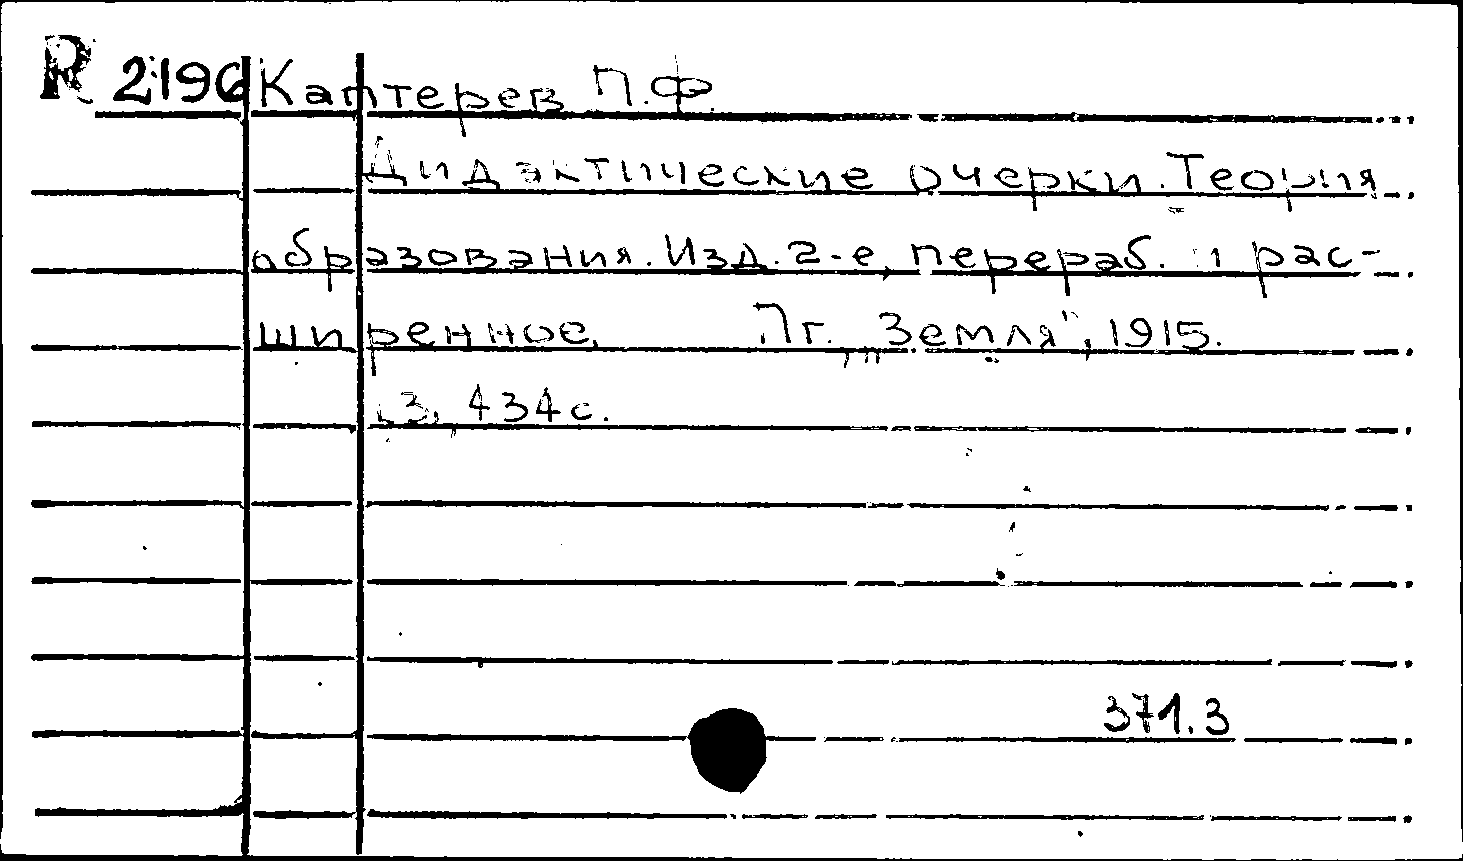 R 2196 Каптерев П.Ф.
Дидактические очерки. Теория
образования. Изд. 2-е, перераб. и рас-
ширенное, Пг., „Земля", 1915.
3, 434 с.
371.3